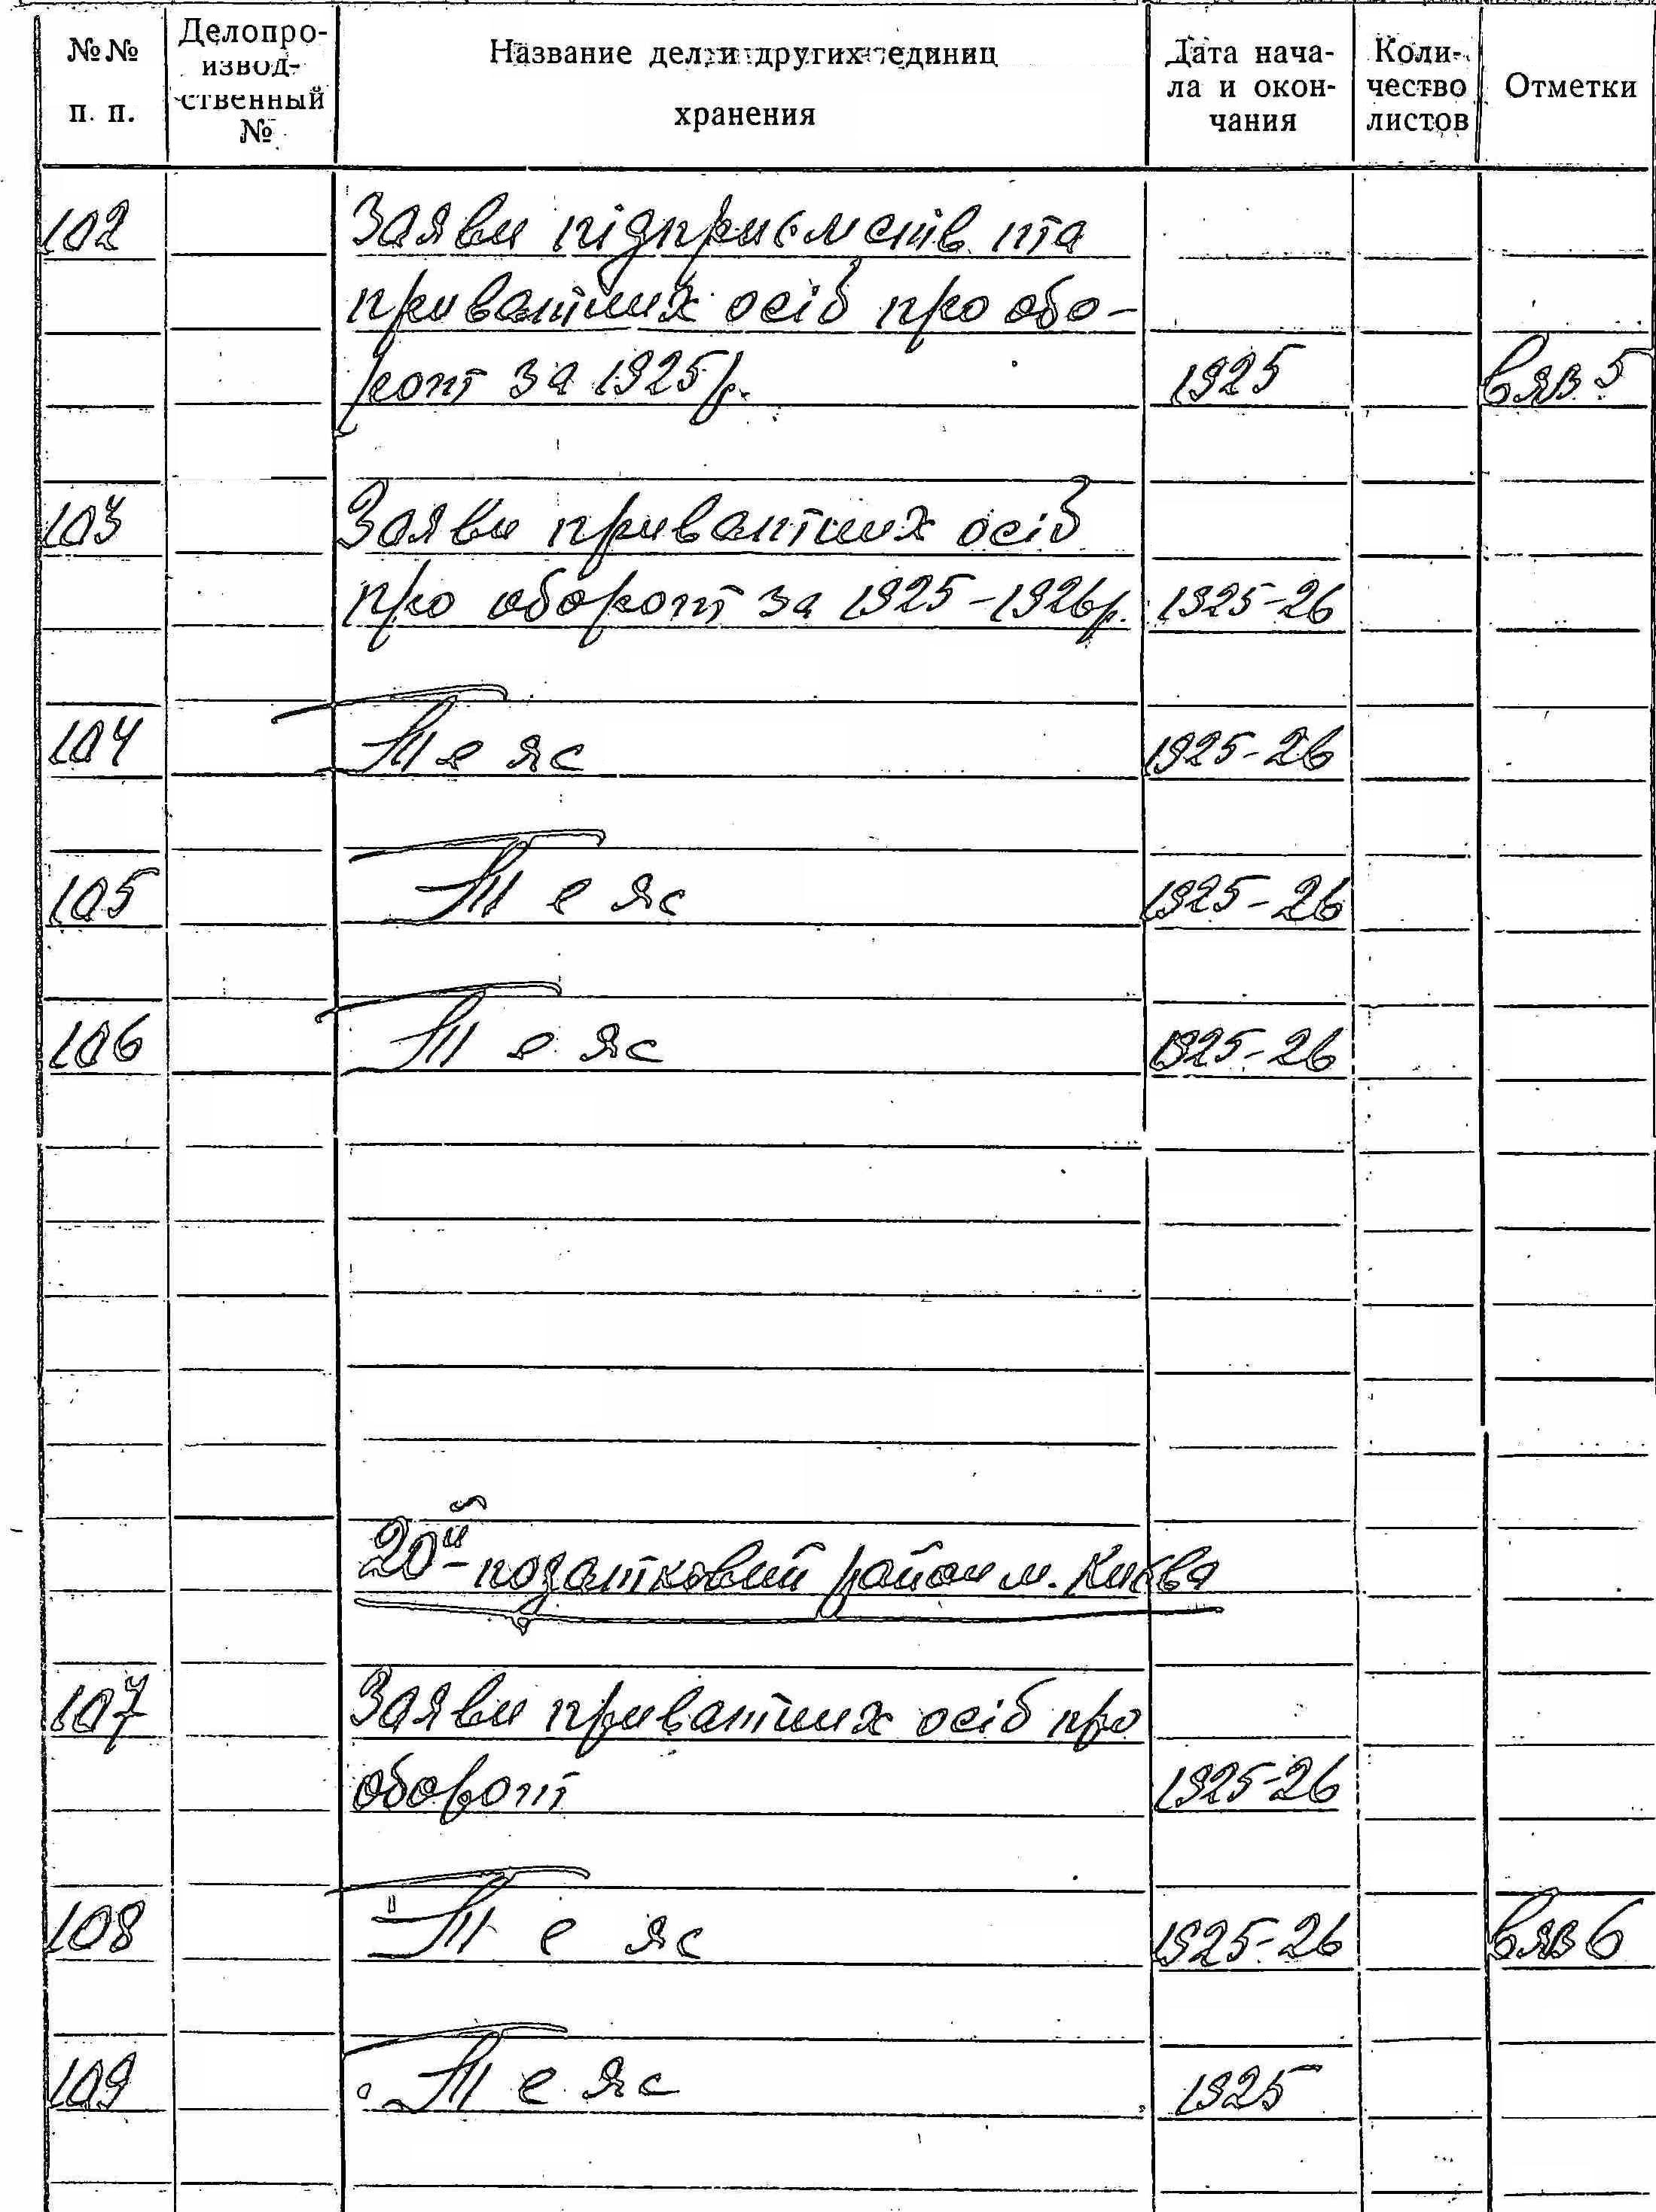 №№ п. п.
Делопро-
извод-
ственный
№
Название дел и других единиц
хранения
Дата нача-
ла и окон-
чания
Коли-
чество
листов
Отметки
102 Заяви підприємств та
приватних осіб про обо-
рот за 1925 р. 1925 вяз 5
103 Заяви приватних осіб
про оборот за 1925-1926 р. 1925-26
104 Те яс 1925-26
105 Те яс 1925-26
106 Те яс 1925-26
20й податковий район м. Києва
107 Заяви приватних осіб про
оборот 1925-26
108 Те яс 1925-26 вяз 6
109 Те яс 1925